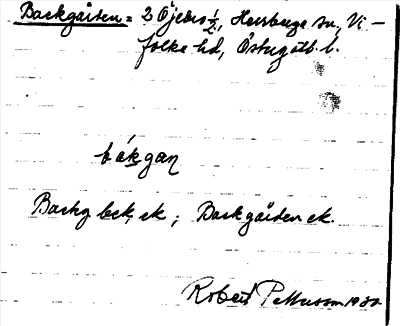 Backgården = 2 Öjebro ½, Herrberga sn, Vi-
folke hd, Östergötl. l.
bákgan
Backg bek, ek; Backgården ek.
Robert Pettersson 1930